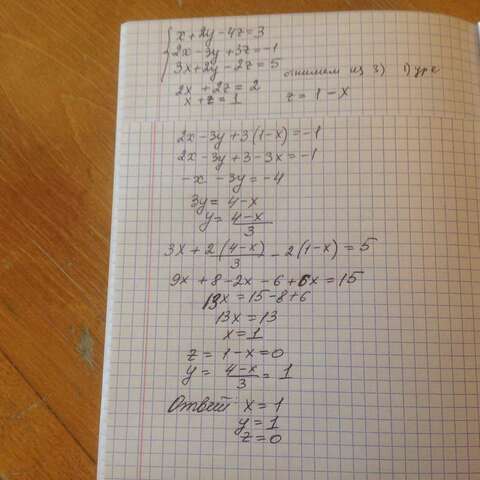 x+2y-4z=3
2x-3y+3z=-1
3x+2y-2z=5
отнимем из 3) 1) ур-е
2x+2z=2
x+z=1 z=1-x
2x-3y+3(1-x)=-1
2x-3y+3-3x=-1
-x-3y=-4
3y=4-x
y=\frac{4-x}{3}
3x+2\frac{(4-x)}{3}-2(1-x)=5
9x+8-2x-6+6x=15
13x=15-8+6
13x=13
x=1
z=1-x=0
y=\frac{4-x}{3}=1
Ответ x=1
y=1
z=0